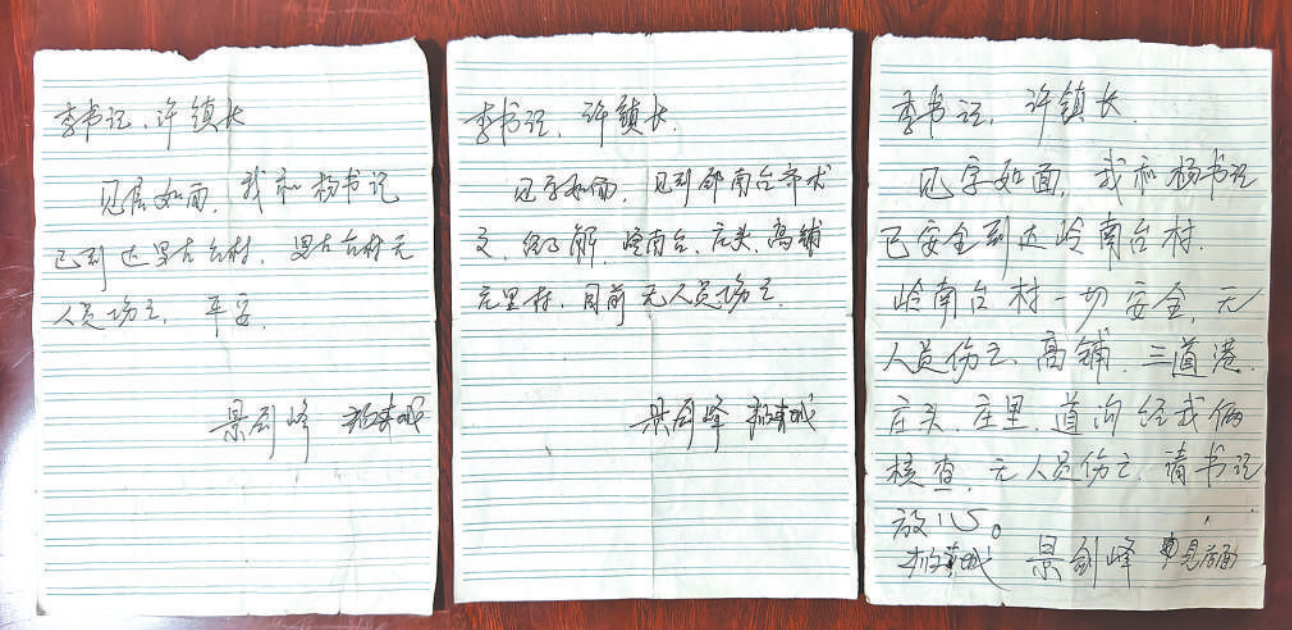 李书记、许镇长
见信如面,我和杨书记
已到达里古台村,里古台村无
人员伤亡,平安.
景剑峰
李书记,许镇长.
见字如面,见到邵南台
解,岭南台、庄头、高铺
庄里村,目前无人员伤亡.
景剑峰
李书记,许镇长.
见字如面,我和杨书记
已安全到达岭南台村.
岭南台村一切安全,无
人员伤亡、高铺、三道港、
庄头、庄里、道沟经我俩
核查,无人员伤亡.请书记
放心。
景剑峰 见背面